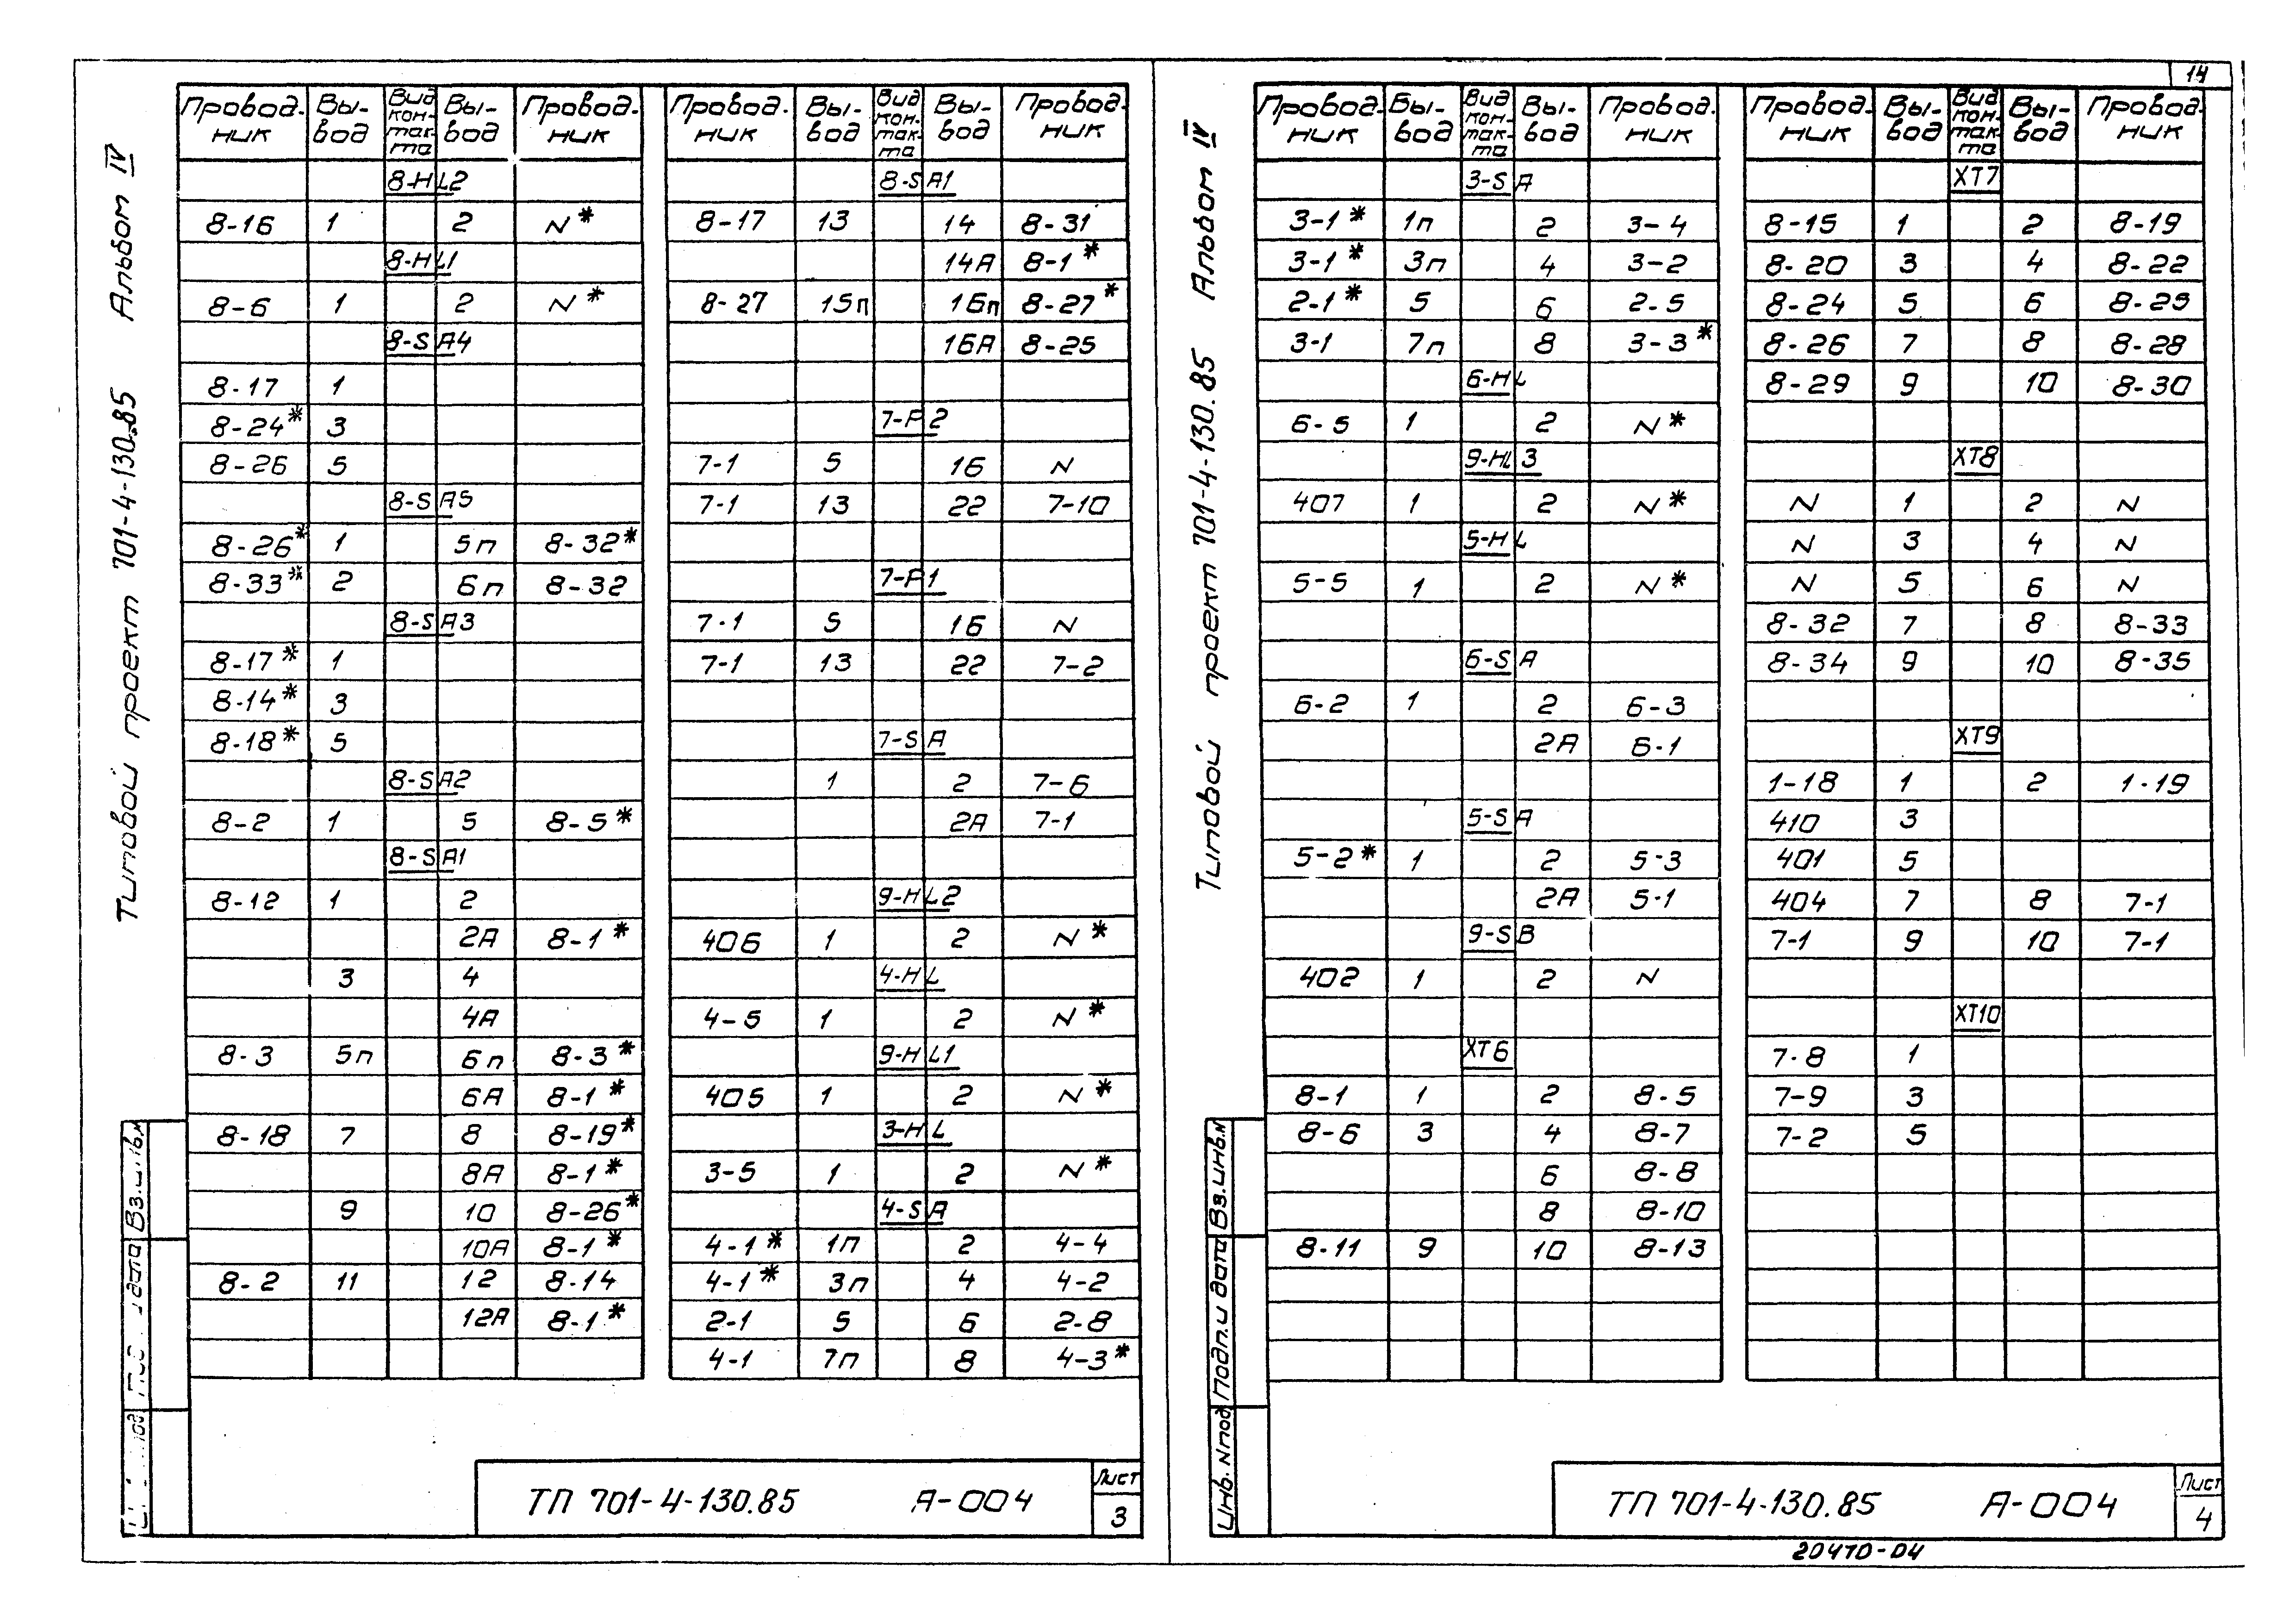 14
Типовой проект 701-4-130.85 Альбом IV
Провод-ник Вы-вод Вид кон-так-та Вы-вод Провод-ник
8-HL2
8-16 1 2 N*
8-HL1
8-6 1 2 N*
8-SA4
8-17 1
8-24* 3
8-26 5
8-SA5
8-26* 1 5п 8-32*
8-33* 2 6п 8-32
8-SA3
8-17* 1
8-14* 3
8-18* 5
8-SA2
8-2 1 5 8-5*
8-SA1
8-12 1 2
2А 8-1*
3 4
4А
8-3 5п 6п 8-3*
6А 8-1*
8-18 7 8 8-19*
8А 8-1*
9 10 8-26*
10А 8-1*
8-2 11 12 8-14
12А 8-1*
Провод-ник Вы-вод Вид кон-так-та Вы-вод Провод-ник
8-SA1
8-17 13 14 8-31
14А 8-1*
8-27 15п 16п 8-27*
16А 8-25
7-P2
7-1 5 16 N
7-1 13 22 7-10
7-P1
7-1 5 16 N
7-1 13 22 7-2
7-SA
1 2 7-6
2А 7-1
9-HL2
406 1 2 N*
4-HL
4-5 1 2 N*
9-HL1
405 1 2 N*
3-HL
3-5 1 2 N*
4-SA
4-1* 1п 2 4-4
4-1* 3п 4 4-2
2-1 5 6 2-8
4-1 7п 8 4-3*
Вз.инв.N
ТП 701-4-130.85 А-004
Лист
3
Типовой проект 701-4-130.85 Альбом IV
Провод-ник Вы-вод Вид кон-так-та Вы-вод Провод-ник
3-SA
3-1* 1п 2 3-4
3-1* 3п 4 3-2
2-1* 5 6 2-5
3-1 7п 8 3-3*
6-HL
6-5 1 2 N*
9-HL3
407 1 2 N*
5-HL
5-5 1 2 N*
6-SA
6-2 1 2 6-3
2А 6-1
5-SA
5-2* 1 2 5-3
2А 5-1
9-SB
402 1 2 N
XT6
8-1 1 2 8-5
8-6 3 4 8-7
6 8-8
8 8-10
8-11 9 10 8-13
Провод-ник Вы-вод Вид кон-так-та Вы-вод Провод-ник
XT7
8-15 1 2 8-19
8-20 3 4 8-22
8-24 5 6 8-25
8-26 7 8 8-28
8-29 9 10 8-30
XT8
N 1 2 N
N 3 4 N
N 5 6 N
8-32 7 8 8-33
8-34 9 10 8-35
XT9
1-18 1 2 1-19
410 3
401 5
404 7 8 7-1
7-1 9 10 7-1
XT10
7-8 1
7-9 3
7-2 5
Инв. N под Подп.и дата Вз.инв.N
ТП 701-4-130.85 А-004
Лист
4
20470-04